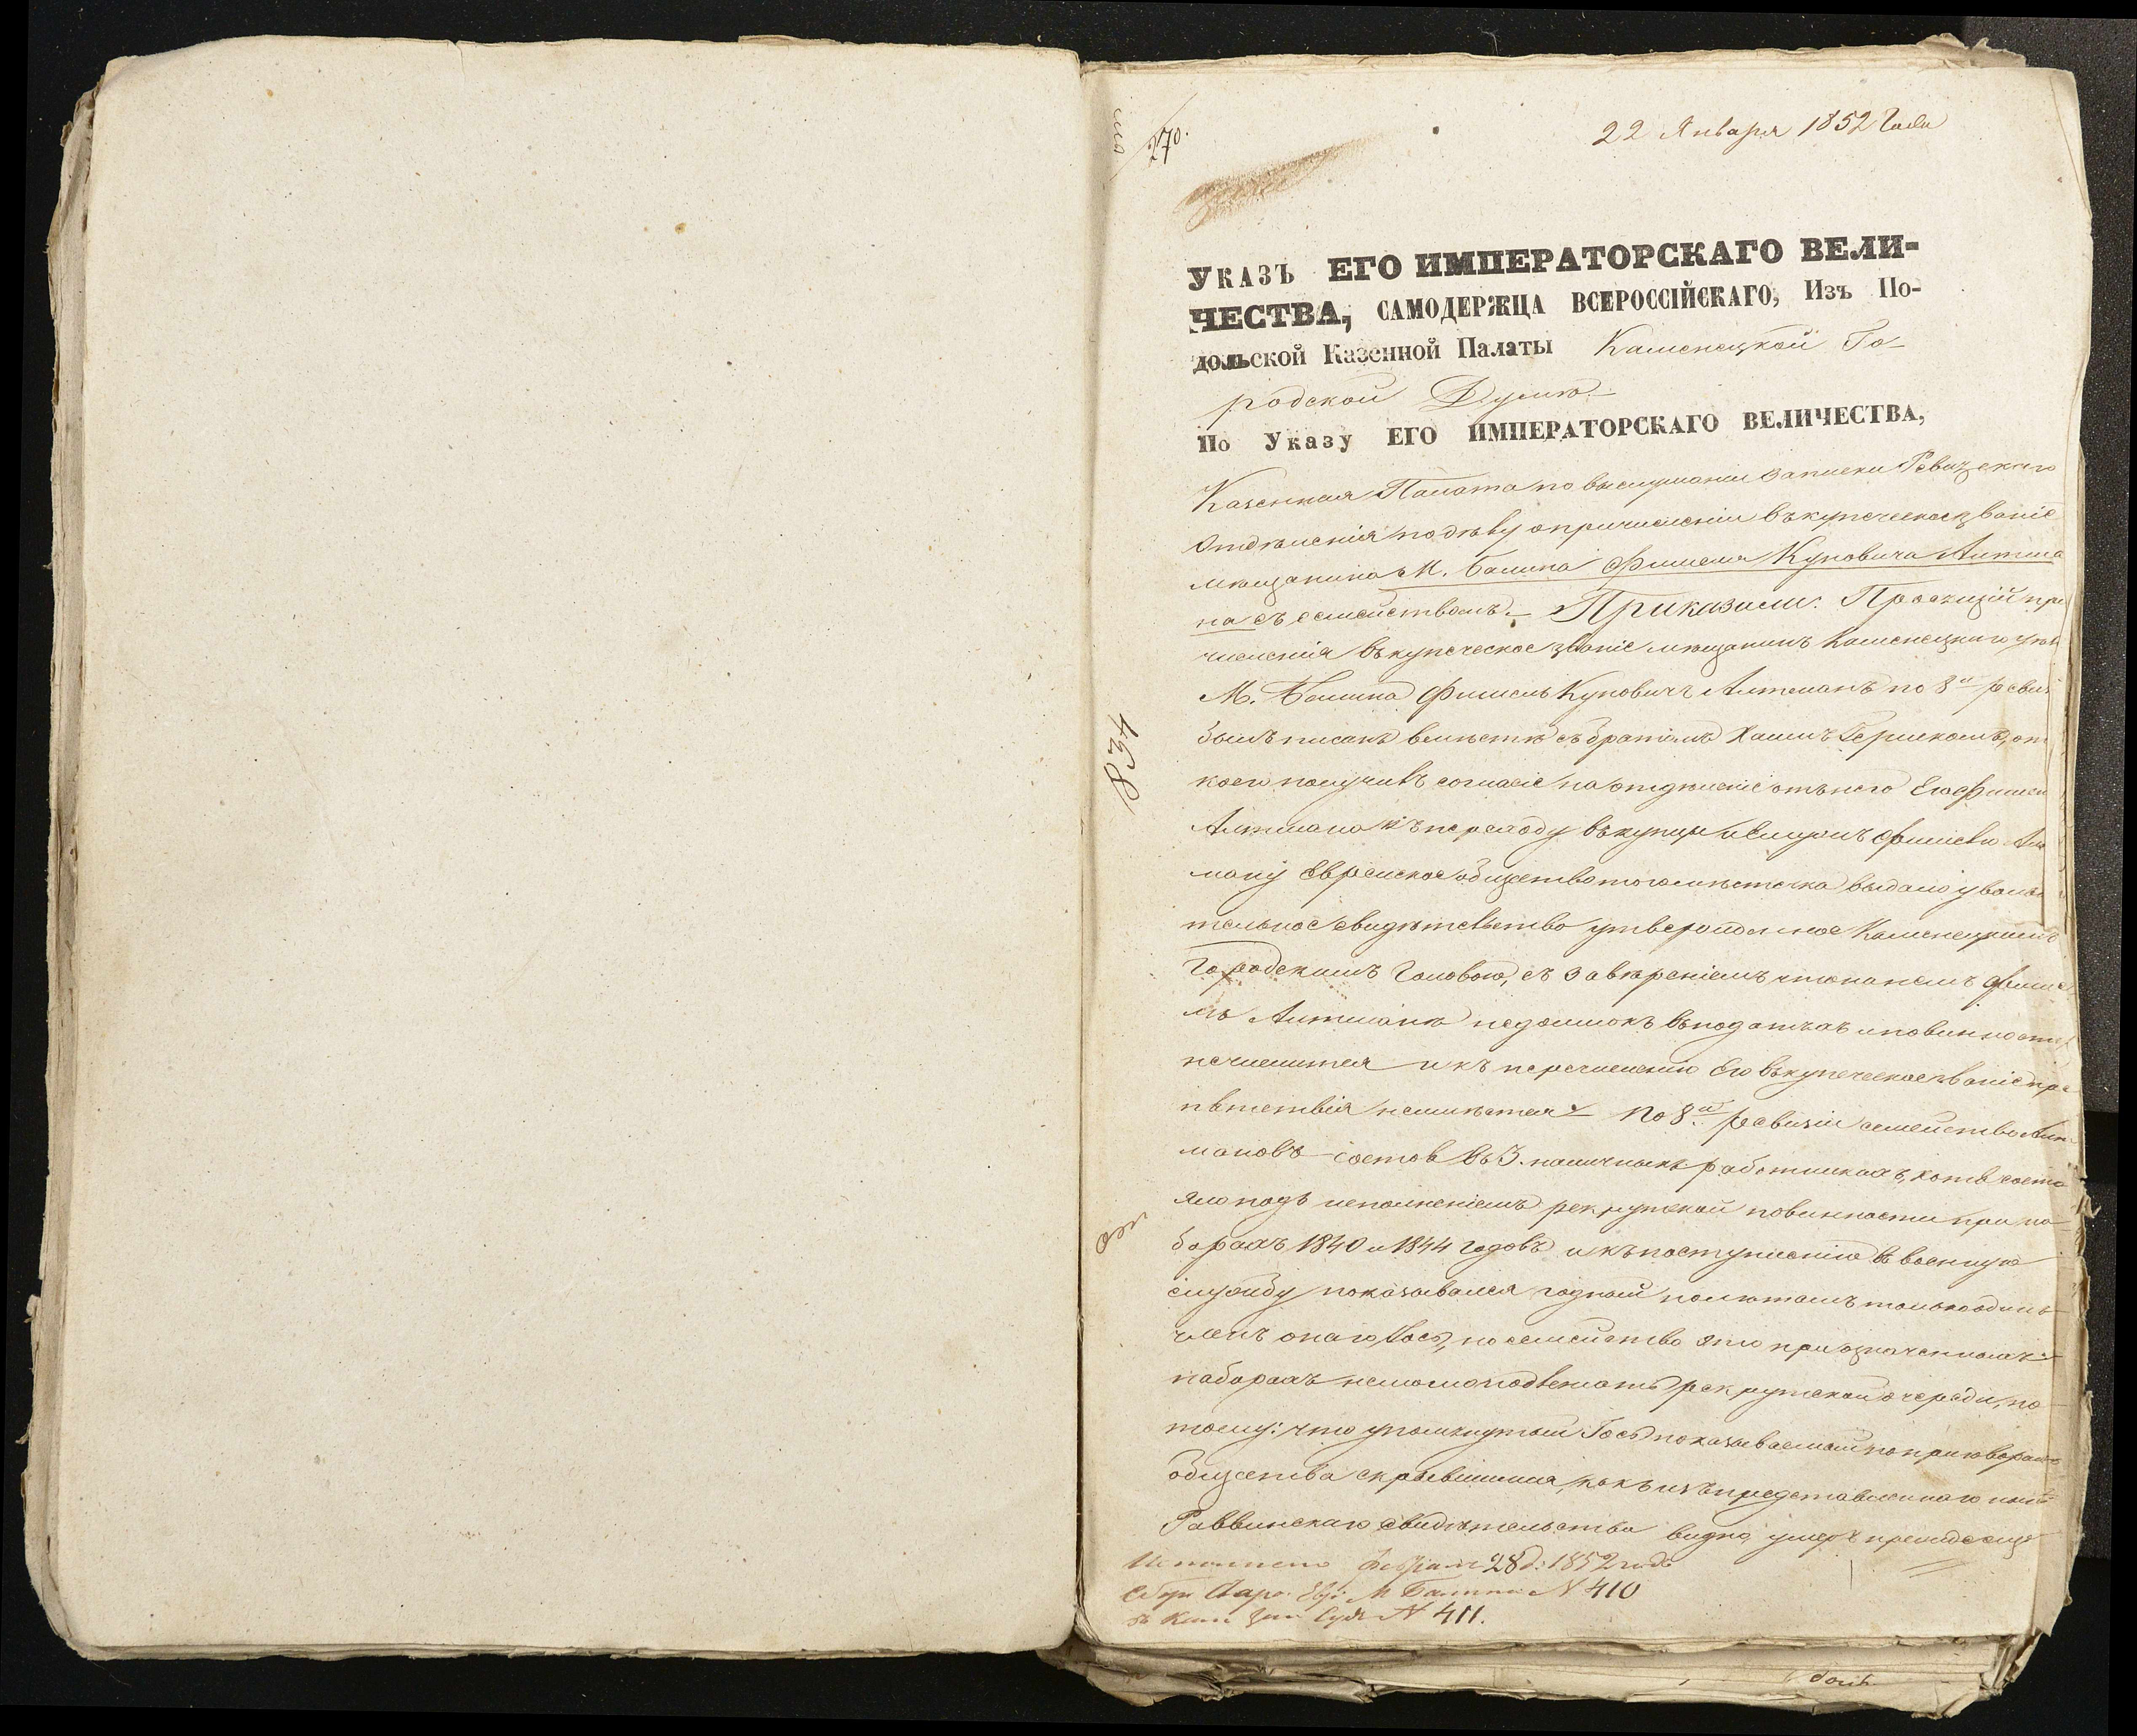 270.
22 Января 1852 Года
УКАЗЪ ЕГО ИМПЕРАТОРСКАГО ВЕЛИ-
ЧЕСТВА, САМОДЕРЖЦА ВСЕРОССІЙСКАГО, Изъ По-
дольской Казенной Палаты Каменецкой Го-
родской Думѣ.
По Указу ЕГО ИМПЕРАТОРСКАГО ВЕЛИЧЕСТВА,
Казенная Палата по выслушаніи записки Ревизскаго
Отдѣленія по дѣлу о причисленіи въ купеческое званіе
мѣщанина М. Балина Фишеля Куповича Алтма
на съ семействомъ. Приказали: Просящій при
численія въ купеческое званіе мѣщанинъ Каменецкаго уѣз
М. Балина Фишель Куповичъ Алтманъ по 8й ревиз
былъ писанъ вмѣстѣ съ братомъ Хаимъ Гершкомъ, от
коего получивъ согласіе на отдѣленіе отъ него Его Фишеля
Алтмана къ переходу въ купцы Фишелю Ал
ману Еврейское общество того мѣстечка выдало уволь
тельное свидѣтельство утвержденное Каменецкимъ
Городскимъ Головою, съ завѣреніемъ что на немъ Фише
лѣ Алтманѣ недоимокъ въ податяхъ и повинностях
нечислится и къ перечисленію Его въ купеческое званіе пре
пятствія неимѣется. По 8й ревизіи семейство Алт-
мановъ состоя въ 3. наличныхъ работникахъ, хотя состо
яло подъ исполненіемъ рекрутской повинности при на-
борахъ 1840 и 1844 годовъ и къ поступленію въ военную
службу показывался годный по лѣтамъ только одинъ
членъ онаго Іось, но семейство это при означенныхъ
наборахъ немогло подлежать рекрутской очереди, по-
тому: что упомянутый Іось показываемый по приговорамъ
общества скрывшимся, какъ изъ представленнаго нынѣ
Раввинскаго свидѣтельства видно, умеръ прежде еще
834
Исполнено Февраля 28 д: 1852 года
Евр: М Балина N 410
въ Кам Зем Судъ N 411.